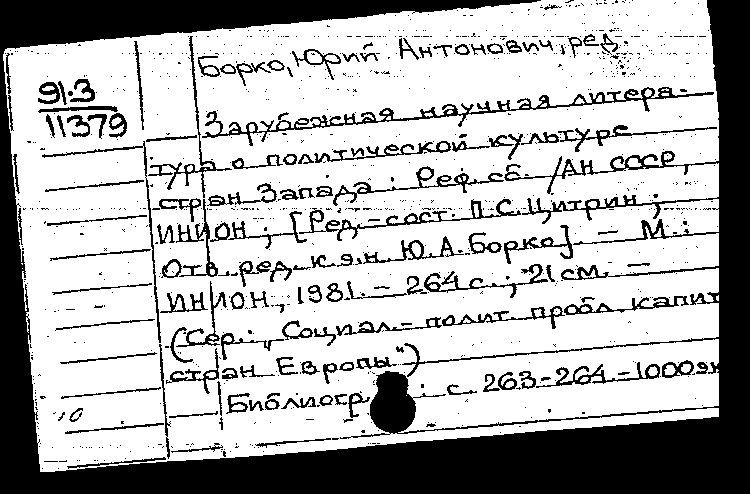 Борко, Юрий Антонович, ред.
91·3
11379
Зарубежная научная литера-
тура о политической культуре
стран Запада : Реф. сб. / АН СССР,
ИНИОН ; [Ред.-сост. П.С. Цитрин ;
Отв. ред. к.э.н. Ю.А. Борко]. — М. :
ИНИОН, 1981. – 264 с. ; 21 см. —
(Сер.: „Социал.-полит. пробл. капит
стран Европы")
Библиогр : с. 263-264. - 1000эк